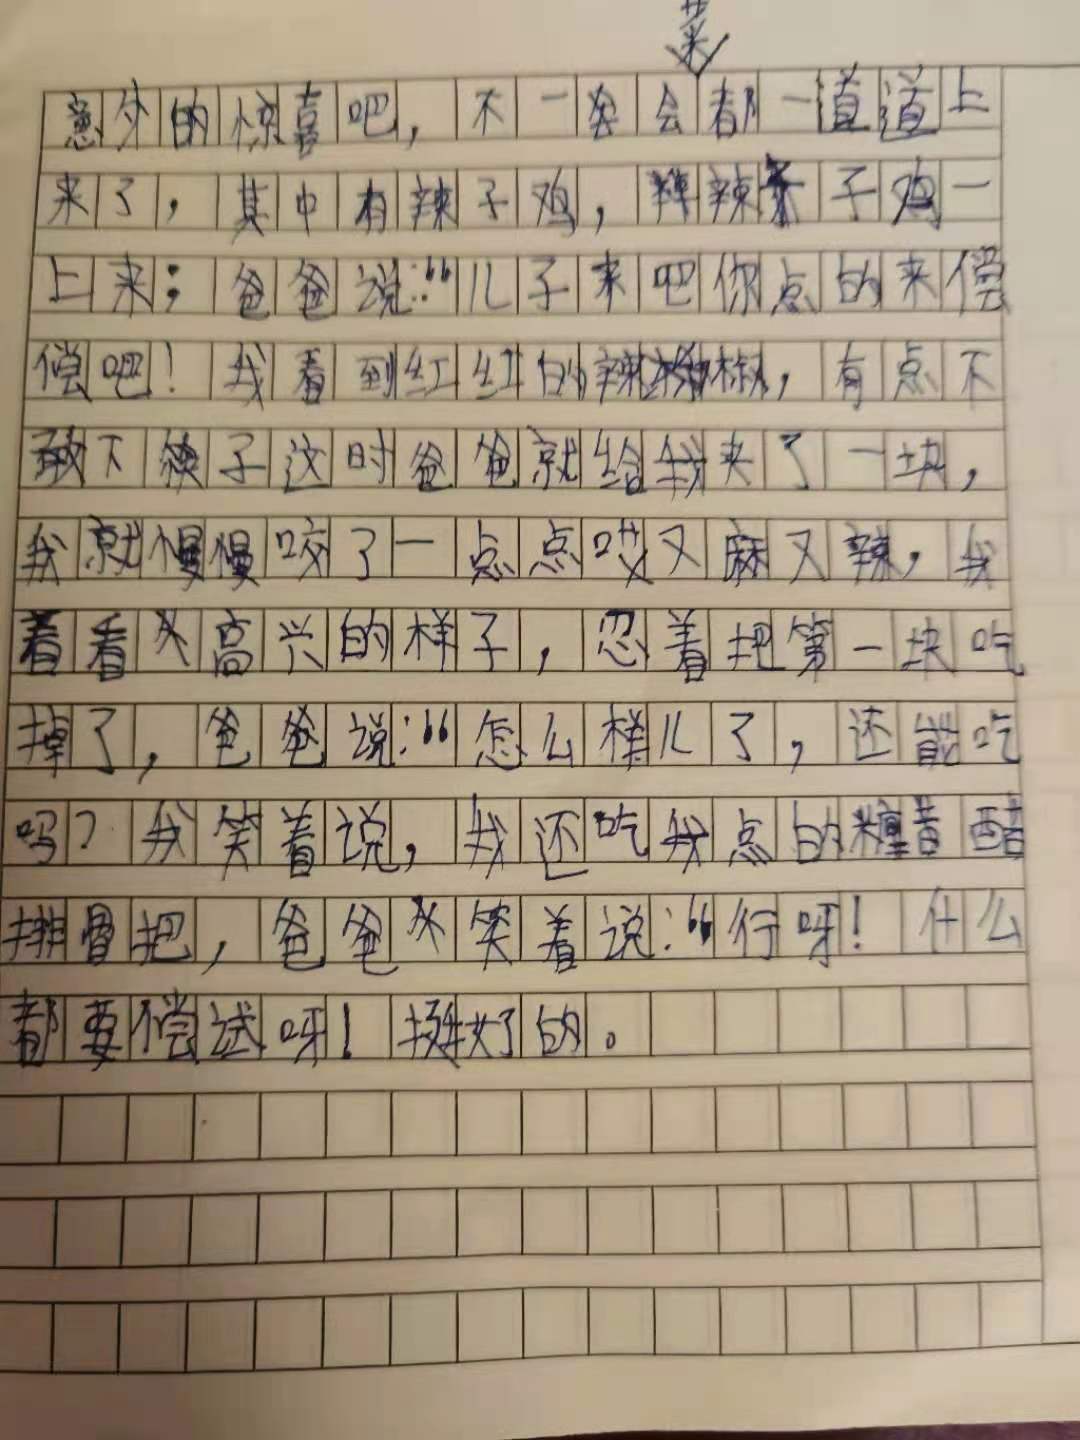 菜
意外的惊喜吧，不一会会都一道道上
来了，其中有辣子鸡，辣子鸡一
上来；爸爸说：“儿子来吧你点的来偿
偿吧！我看到红红的辣椒，有点不
敢下筷子这时爸爸就给我夹了一块，
我就慢慢咬了一点点哎又麻又辣，我
看高兴的样子，忍着把第一块吃
掉了，爸爸说：“怎么样儿了，还能吃
吗？我笑着说，我还吃我点的糖醋
排骨把，爸爸笑着说：“行呀！什么
都要偿试呀！挺好的。